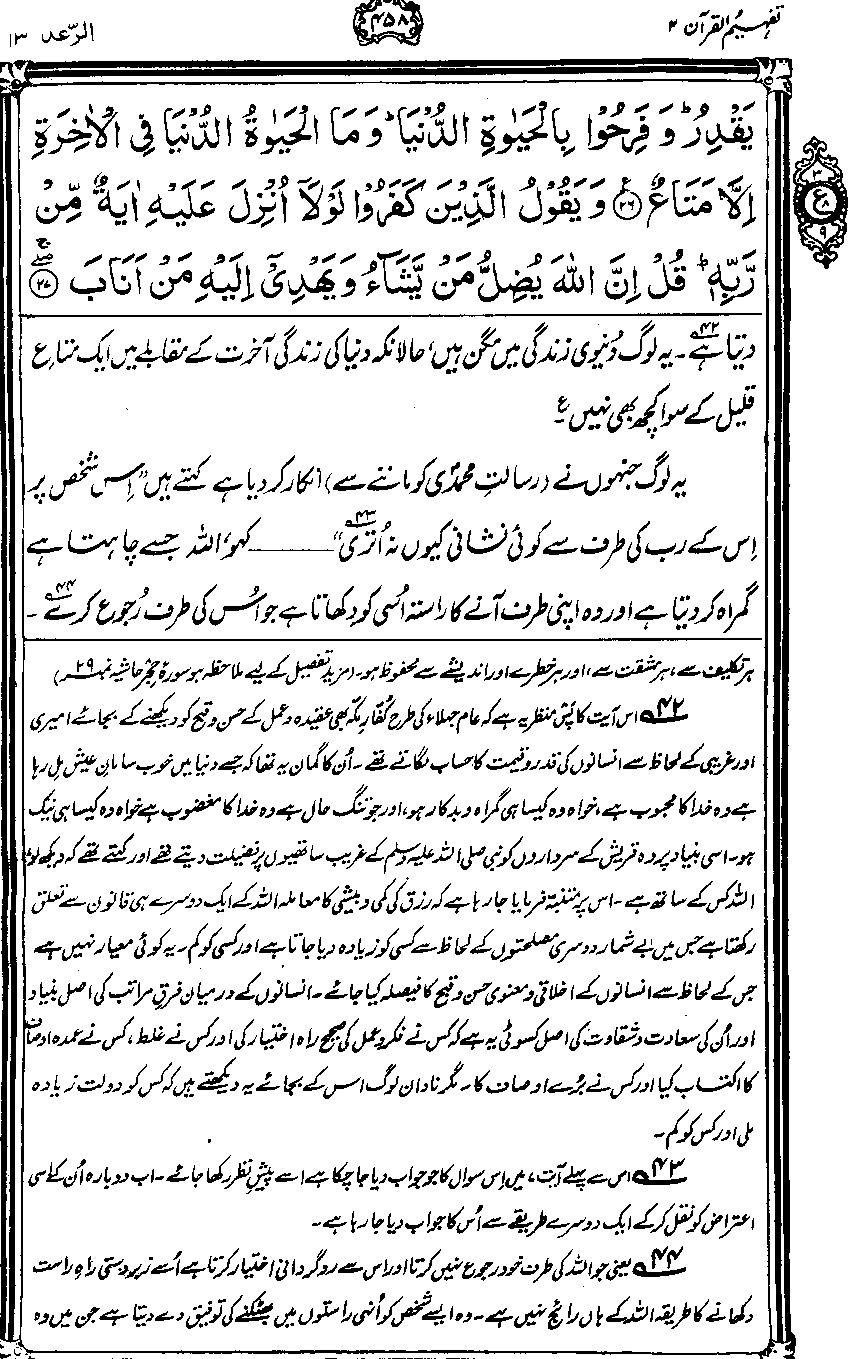 تفہیم القرآن ۲
۴۵۸
الرّعد ۱۳
يَقْدِرُ ؕ وَفَرِحُوْا بِالْحَيٰوةِ الدُّنْيَا ؕ وَمَا الْحَيٰوةُ الدُّنْيَا فِي الْاٰخِرَةِ
اِلَّا مَتَاعٌ ﴿۲۶﴾ وَيَقُوْلُ الَّذِيْنَ كَفَرُوْا لَوْلَاۤ اُنْزِلَ عَلَيْهِ اٰيَةٌ مِّنْ
رَّبِّهٖ ؕ قُلْ اِنَّ اللّٰهَ يُضِلُّ مَنْ يَّشَآءُ وَيَهْدِيْۤ اِلَيْهِ مَنْ اَنَابَ ﴿۲۷﴾
دیتا ہے۴۲۔ یہ لوگ دُنیوی زندگی میں مگن ہیں، حالانکہ دنیا کی زندگی آخرت کے مقابلے میں ایک متاعِ
قلیل کے سوا کچھ بھی نہیں ؏۔
یہ لوگ جنہوں نے (رسالتِ محمدی کو ماننے سے) انکار کر دیا ہے کہتے ہیں ”اِس شخص پر
اِس کے رب کی طرف سے کوئی نشانی کیوں نہ اُتری“۴۳ ــــــ کہو، اللہ جسے چاہتا ہے
گمراہ کر دیتا ہے اور وہ اپنی طرف آنے کا راستہ اُسی کو دکھاتا ہے جو اُس کی طرف رُجوع کرے۴۴۔
ہر تکلیف سے، ہر مشقت سے، اور ہر خطرے اور اندیشے سے محفوظ ہو۔ (مزید تفصیل کے لیے ملاحظہ ہو سورۂ حِجر حاشیہ نمبر ۲۹)
۴۲ اس آیت کا پس منظر یہ ہے کہ عام جہلاء کی طرح کفارِ مکّہ بھی عقیدہ و عمل کے حسن و قبح کو دیکھنے کے بجائے امیری
اور غریبی کے لحاظ سے انسانوں کی قدر و قیمت کا حساب لگاتے تھے۔ اُن کا گمان یہ تھا کہ جسے دنیا میں خوب سامانِ عیش مل رہا
ہے وہ خدا کا محبوب ہے، خواہ وہ کیسا ہی گمراہ و بدکار ہو، اور جو تنگ حال ہے وہ خدا کا مغضوب ہے خواہ وہ کیسا ہی نیک
ہو۔ اسی بنیاد پر وہ قریش کے سرداروں کو نبی صلی اللہ علیہ وسلم کے غریب ساتھیوں پر فضیلت دیتے تھے اور کہتے تھے کہ دیکھ لو،
اللہ کس کے ساتھ ہے۔ اس پر متنبّہ فرمایا جا رہا ہے کہ رزق کی کمی و بیشی کا معاملہ اللہ کے ایک دوسرے ہی قانون سے تعلق
رکھتا ہے جس میں بے شمار دوسری مصلحتوں کے لحاظ سے کسی کو زیادہ دیا جاتا ہے اور کسی کو کم۔ یہ کوئی معیار نہیں ہے
جس کے لحاظ سے انسانوں کے اخلاقی و معنوی حسن و قبح کا فیصلہ کیا جائے۔ انسانوں کے درمیان فرقِ مراتب کی اصل بنیاد
اور اُن کی سعادت و شقاوت کی اصل کسوٹی یہ ہے کہ کس نے فکر و عمل کی صحیح راہ اختیار کی اور کس نے غلط، کس نے عمدہ اوصاف
کا اکتساب کیا اور کس نے بُرے اوصاف کا۔ مگر نادان لوگ اس کے بجائے یہ دیکھتے ہیں کہ کس کو دولت زیادہ
ملی اور کس کو کم۔
۴۳ اس سے پہلے آیت ۷ میں اِس سوال کا جو جواب دیا جا چکا ہے اسے پیشِ نظر رکھا جائے۔ اب دوبارہ اُن کے اسی
اعتراض کو نقل کر کے ایک دوسرے طریقے سے اُس کا جواب دیا جا رہا ہے۔
۴۴ یعنی جو اللہ کی طرف خود رجوع نہیں کرتا اور اس سے روگردانی اختیار کرتا ہے اُسے زبردستی راہِ راست
دکھانے کا طریقہ اللہ کے ہاں رائج نہیں ہے۔ وہ ایسے شخص کو اُنہی راستوں میں بھٹکنے کی توفیق دے دیتا ہے جن میں وہ